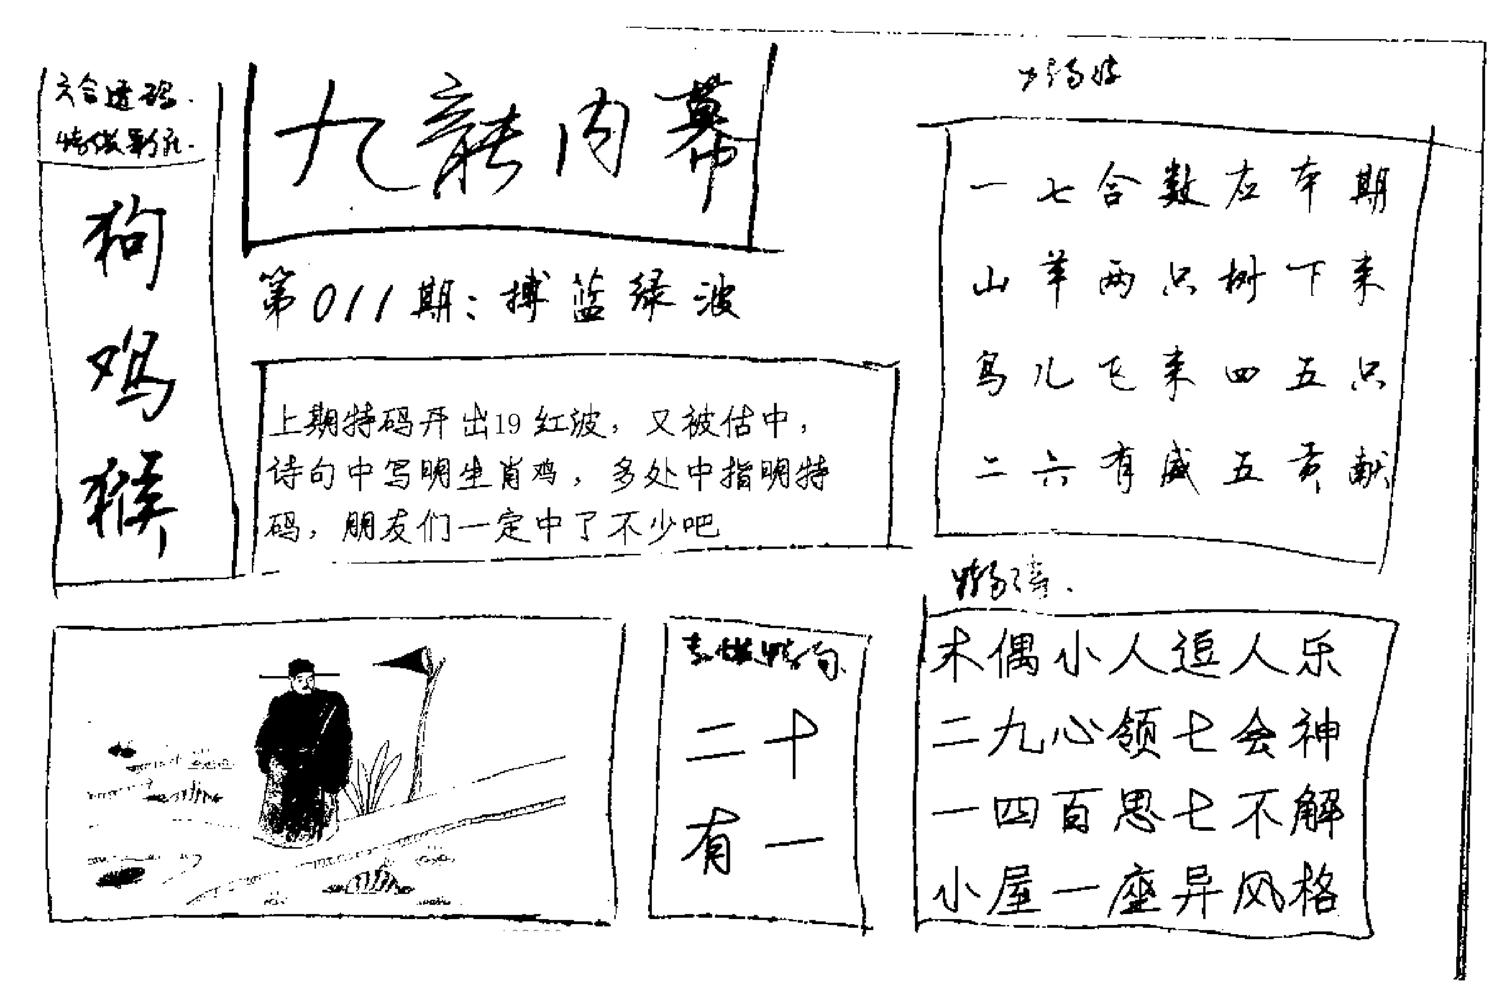 六合透码.
狗
鸡
猴
九龍内幕
第011期：搏蓝绿波
上期特码开出19红波，又被估中，
诗句中写明生肖鸡，多处中指明特
码，朋友们一定中了不少吧
一七合数应本期
山羊两只树下来
鸟儿飞来四五只
二六有威五贡献
二十
有一
木偶小人逗人乐
二九心领七会神
一四百思七不解
小屋一座异风格